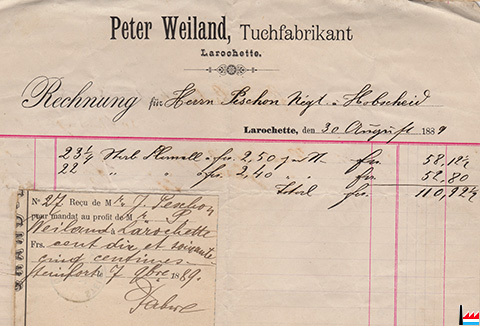 Peter Weiland, Tuchfabrikant
Larochette.
Rechnung für Herrn Peschon Negt - Hobscheid
Larochette, den 30 August 1889
23 1/4 frs. 2,50 frs. 58,12 1/2
22 " " 2,40 frs. 52,80
Total frs. 110,92 1/2
No 27 Reçu de Mr J. Peschon
pour mandat au profit de Mr P.
Weiland à Larochette
Frs. cent dix et soixante
cinq centimes
Steinfort 7 9bre 1889.